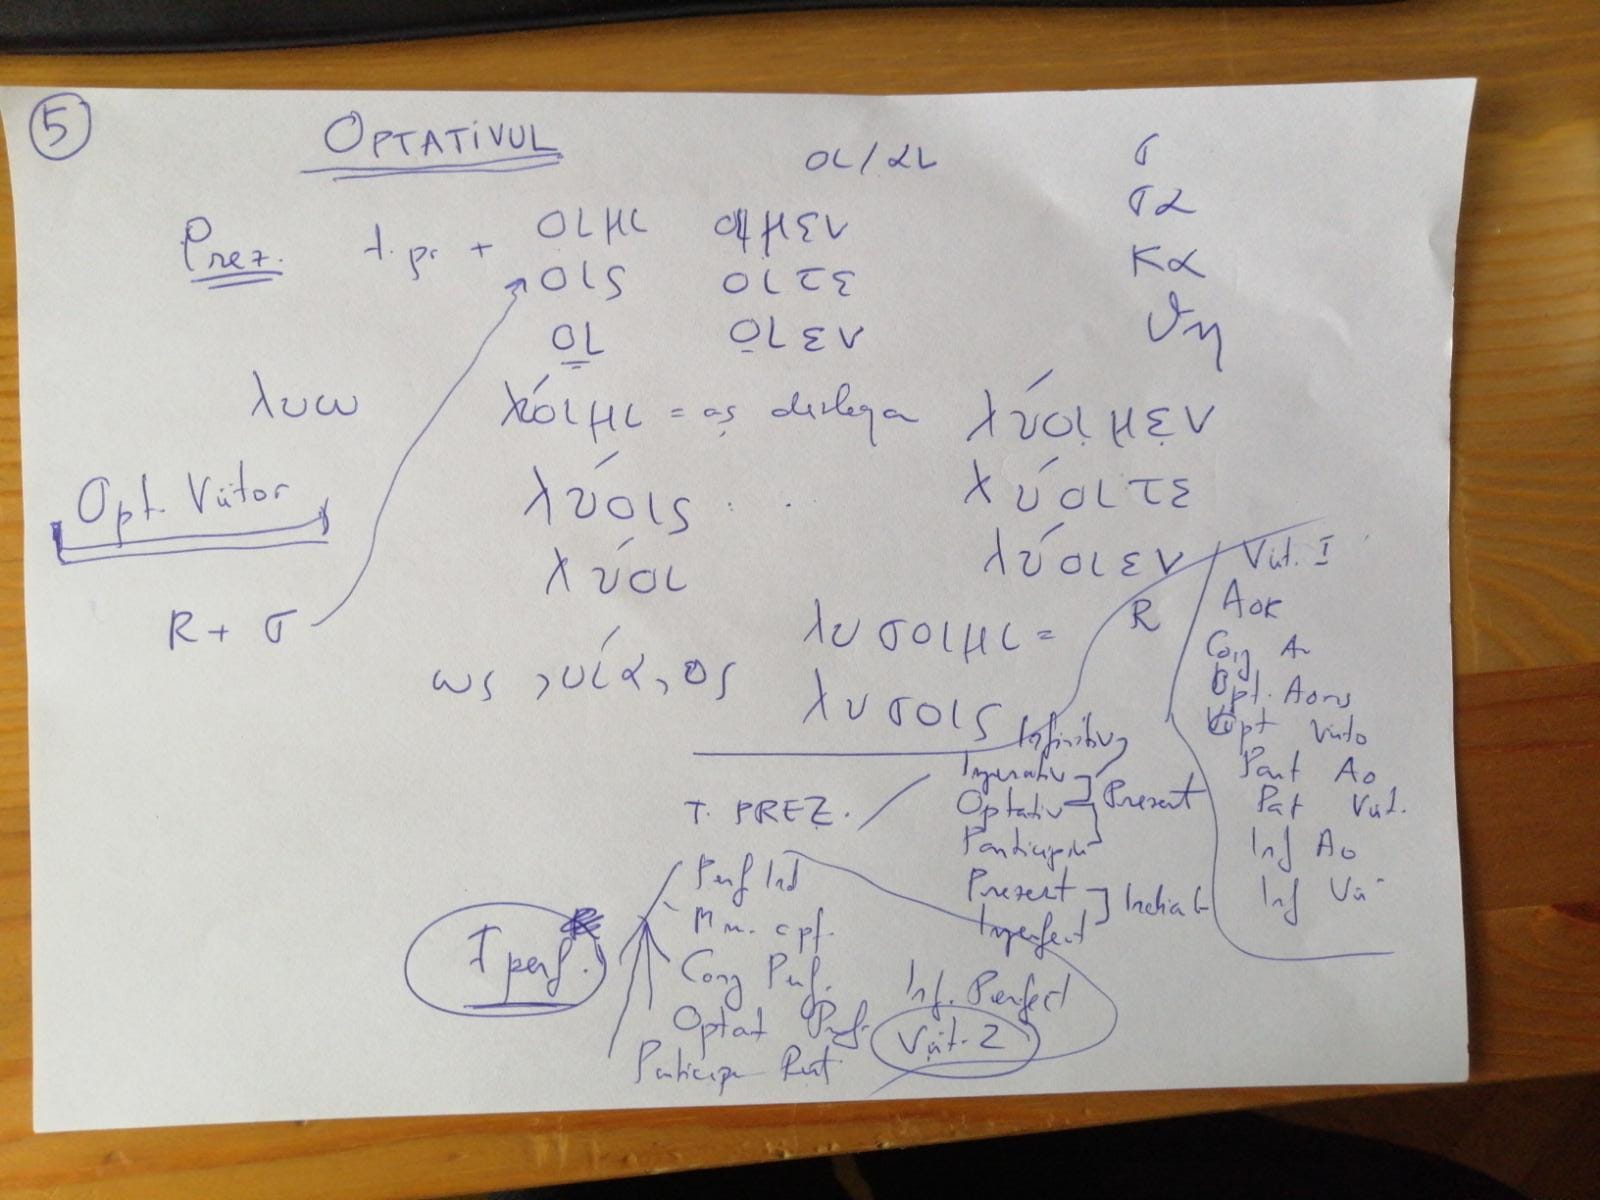 5
OPTATIVUL
οι/αι
σ
σα
κα
θη
Prez. t. pr + οιμι οιμεν
οις οιτε
οι οιεν
λυω
λύοιμι = aș dezlega λύοιμεν
λύοις λύοιτε
λύοι λύοιεν
Opt. Viitor
R + σ
λυσοιμι =
λυσοις
ως, υῖα, ος
R
Viit. I
Aor
Conj A
Opt. Aoris
Opt Viito
Part Ao
Part Viit.
Inf Ao
Inf Vii
T. PREZ.
Infinitiv
Imperativ
Optativ Prezent
Participiu
Prezent Indicat
Imperfect
T perf.
Perf Ind
M m. c. pf.
Conj Perf.
Optat Perf.
Participiu
Inf. Perfect
Viit. 2